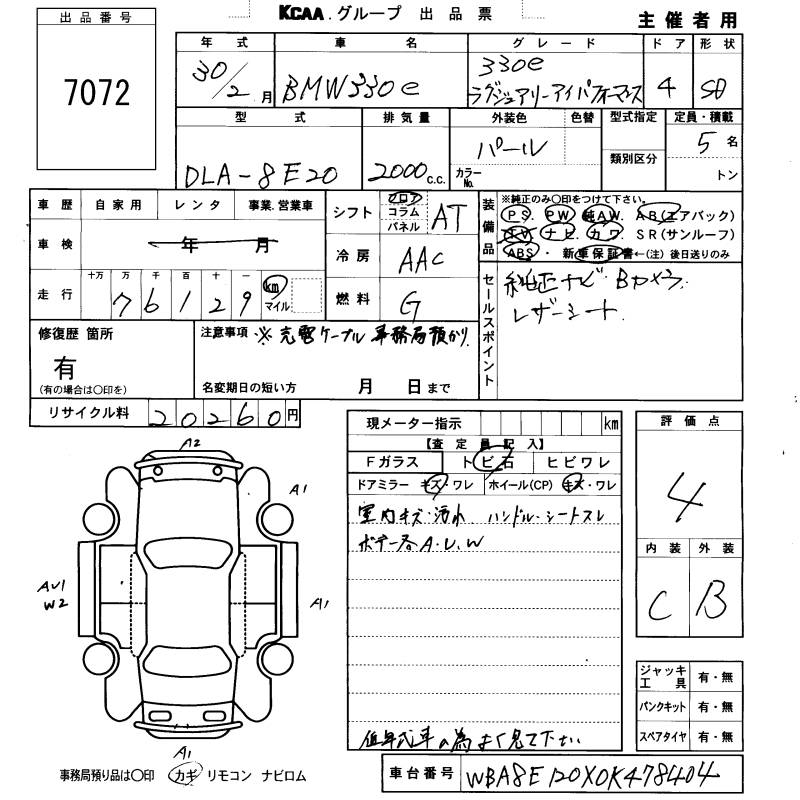 KCAA.グループ 出品票
主催者用
出品番号
7072
年式 車名 グレード ドア 形状
30/2月 BMW330e 330e ラグジュアリーアイパフォーマンス 4 SD
型式 排気量 外装色 色替 型式指定 定員・積載
DLA-8E20 2000c.c. パール カラーNo. 類別区分 5名 トン
車歴 自家用 レンタ 事業.営業車
シフト フロア コラム パネル AT
装備品 ※純正のみ〇印をつけて下さい。
PS. PW 純AW. AB(エアバック)
TV ナビ. カワ SR(サンルーフ)
ABS・新車保証書←(注)後日送りのみ
車検 年 月
冷房 AAC
走行 十万 万 千 百 十 一
76129 km マイル
燃料 G
セールスポイント 純正ナビ・Bカメラ
レザーシート
修復歴 箇所
有
(有の場合は〇印を)
注意事項 ※充電ケーブル事務局預かり
名変期日の短い方 月 日まで
リサイクル料 20260円
現メーター指示 km
【査定員記入】
Fガラス トビ石 ヒビワレ
ドアミラー キズ・ワレ ホイール(CP) キズ・ワレ
室内キズ・汚れ ハンドル・シートスレ
ボデー各A.U.W
低年式車の為よく見て下さい
評価点
4
内装 外装
C B
ジャッキ工具 有・無
パンクキット 有・無
スペアタイヤ 有・無
A2
A1
AU1
W2
A1
A1
事務局預り品は〇印 カギ リモコン ナビロム
車台番号 WBA8E120X0K478404